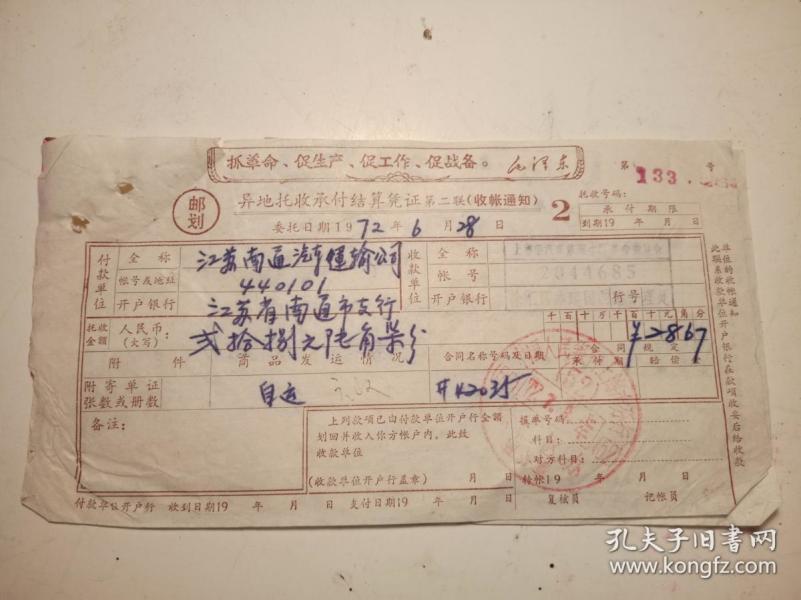 抓革命、促生产、促工作、促战备。 毛泽东
第 133 号
邮划
异地托收承付结算凭证 第二联(收帐通知) 2
托收号码:
承付期限
到期19 年 月 日
委托日期1972年6月28日
付款单位 全称 江苏南通汽车运输公司
帐号或地址 440101
开户银行 江苏省南通市支行
收款单位 全称
帐号 2044685
开户银行 行号
托收金额 人民币:(大写) 贰拾捌元陆角柒分
千百十万千百十元角分
¥2867
附件 商品发运情况 合同名称号码及日期
合同规定
承付期 赔偿金
附寄单证张数或册数 自运
备注:
上列款项已由付款单位开户行全额
划回并收入你方帐户内。此致
收款单位
(收款单位开户行盖章) 月 日
科目:
对方科目:
转帐19 年 月 日
复核员 记帐员
付款单位开户行 收到日期19 年 月 日 支付日期19 年 月 日
此联系收款单位开户银行在款项收妥后给收款
单位的收帐通知
孔夫子旧书网
www.kongfz.com